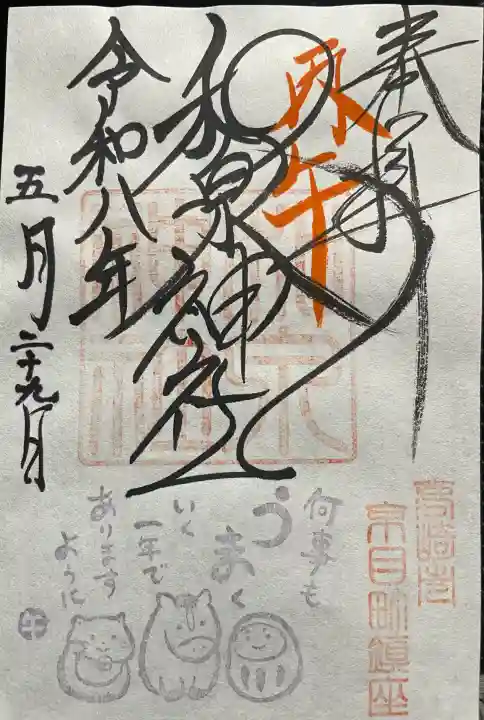 奉拝
丙午
和泉神社
令和八年
五月二十九日
高崎市
京目町鎮座
何事も
うまく
いく
一年で
あります
ように